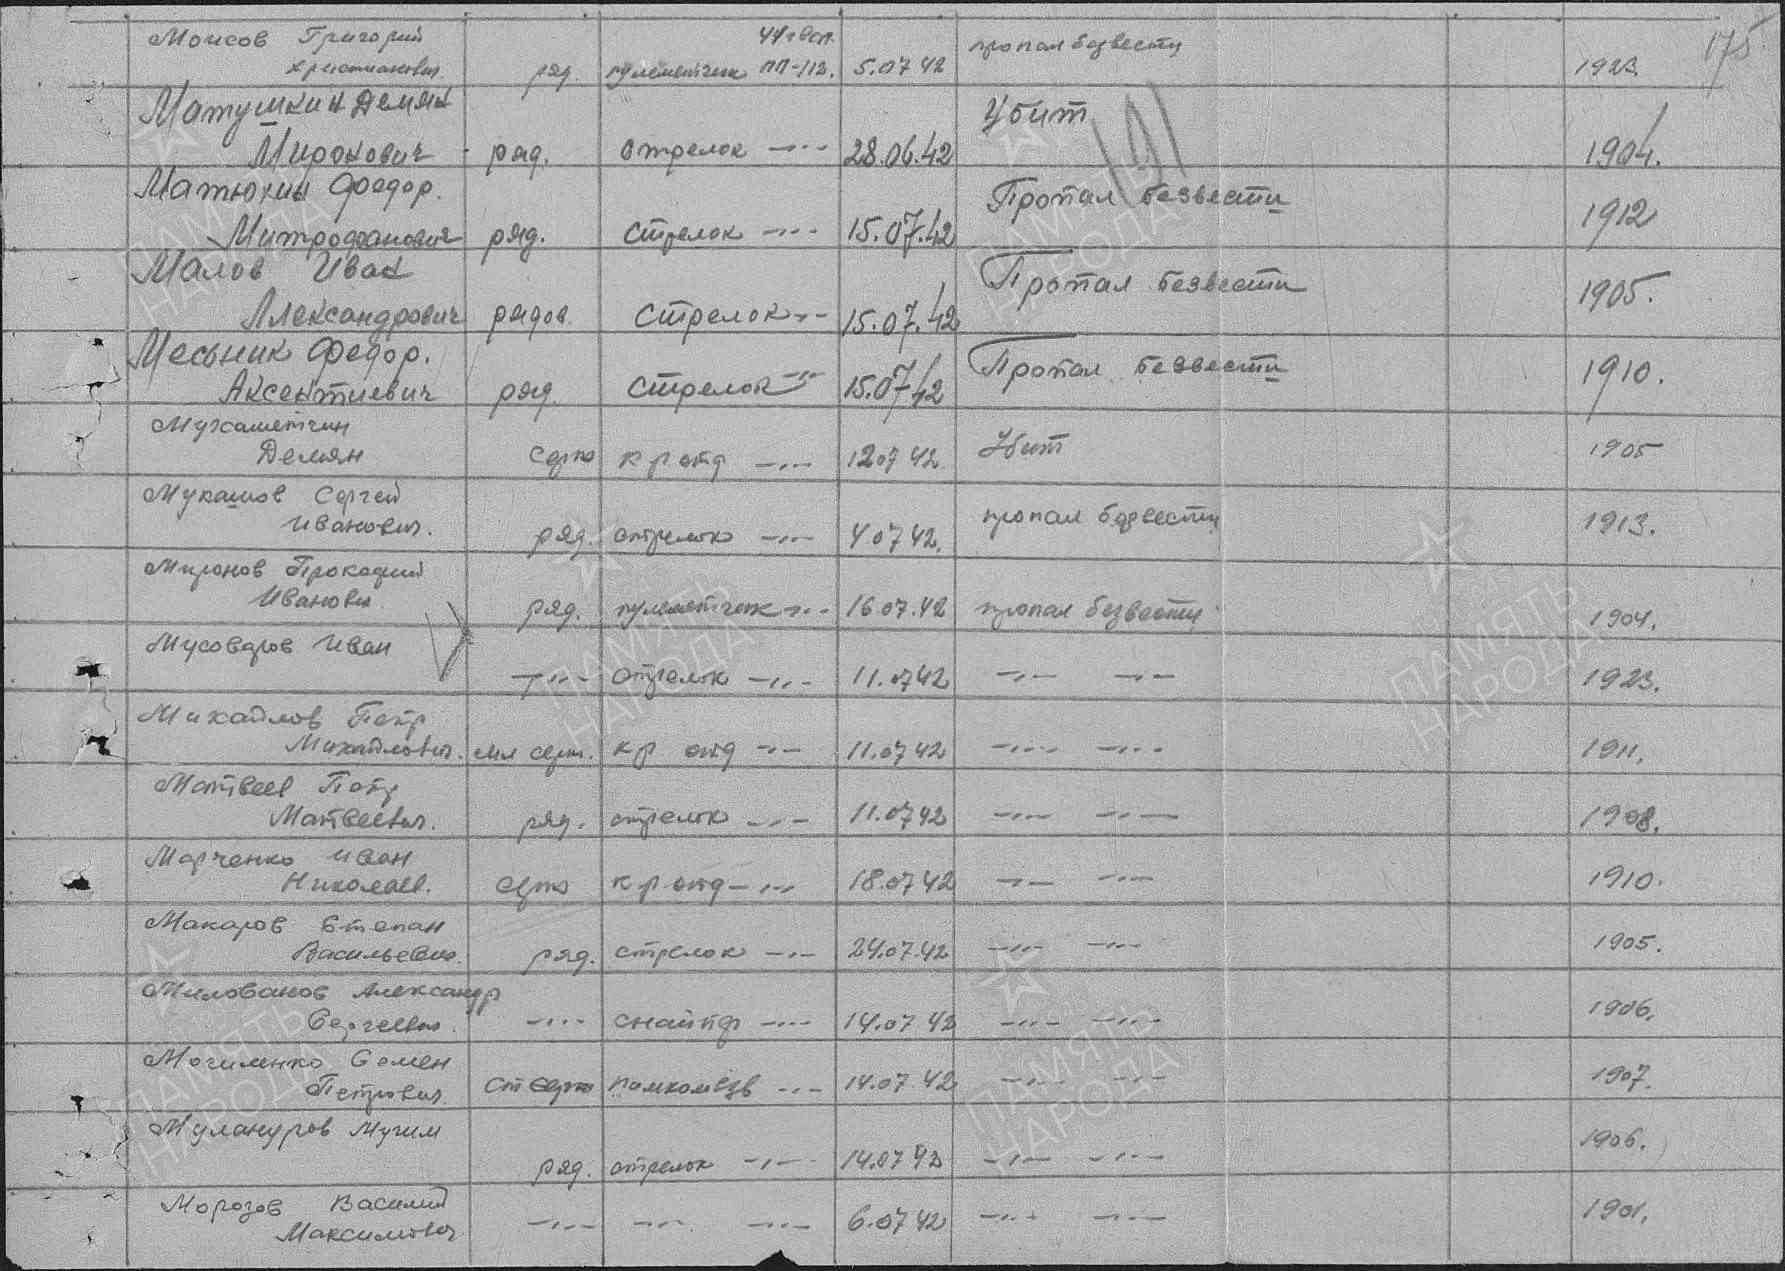 175
44 гвсп.
Моисов Григорий пропал безвести
Христианович. ряд. пулеметчик ПП-112. 5.07 42 1923.
Матушкин Демян Убит
Миронович ряд. стрелок -"- 28.06.42 1904.
191
Матюхин Федор. Пропал безвести
Митрофанович ряд. стрелок -"- 15.07.42 1912
Малов Иван Пропал безвести
Александрович рядов. стрелок -"- 15.07.42 1905.
Месьник Федор. Пропал безвести
Аксентиевич ряд. стрелок -"- 15.07 42 1910.
Мухаметчин Убит
Демян серж к р отд -"- 12 07 42. 1905
Мукашов Сергей пропал безвести
Иванович. ряд. стрелок -"- 4 07 42. 1913.
Миронов Прокофий
Иванович ряд. пулеметчик -"- 16.07.42 пропал безвести 1904.
Мусоваров Иван
-"- стрелок -"- 11.07 42 -"- -"- 1923.
Михайлов Петр
Михайлович. мл серж. к р отд -"- 11.07 42 -"- -"- 1911.
Матвеев Петр
Матвеевич. ряд. стрелок -"- 11.07 42 -"- -"- 1908.
Марченко Иван
Николаев. серж к р отд -"- 18.07 42 -"- -"- 1910.
Макаров Степан
Васильевич. ряд. стрелок -"- 24.07.42 -"- -"- 1905.
Милованов Александр
Сергеевич. -"- снайпр -"- 14.07 42 -"- -"- 1906.
Могиленко Семен
Петрович. ст серж помкомвзв -"- 14.07 42 -"- -"- 1907.
Мулануров Мугим
ряд. стрелок -"- 14.07 42 -"- -"- 1906.
Морозов Василий
Максимович -"- -"- -"- 6.07 42 -"- -"- 1901.
ПАМЯТЬ
НАРОДА